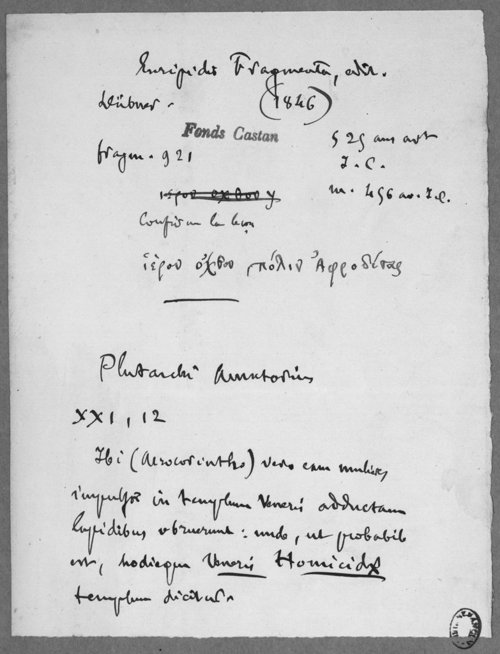 Euripidis Fragmenta, edit.
Dübner. (1846)
Fonds Castan
fragm. 921
525 ans avt
J. C.
m. 456 av. J. C.
la leçon
ἱερον ὄχθον πόλιν Ἀφροδίτας
Plutarchi Amatorius
XXI, 12
Ibi (Acrocorintho) vero eam mulieres
in templum Veneris adductam
lapidibus obruerunt : unde, ut probabile
est, hodieque Veneris Homicidæ
templum dicitur.